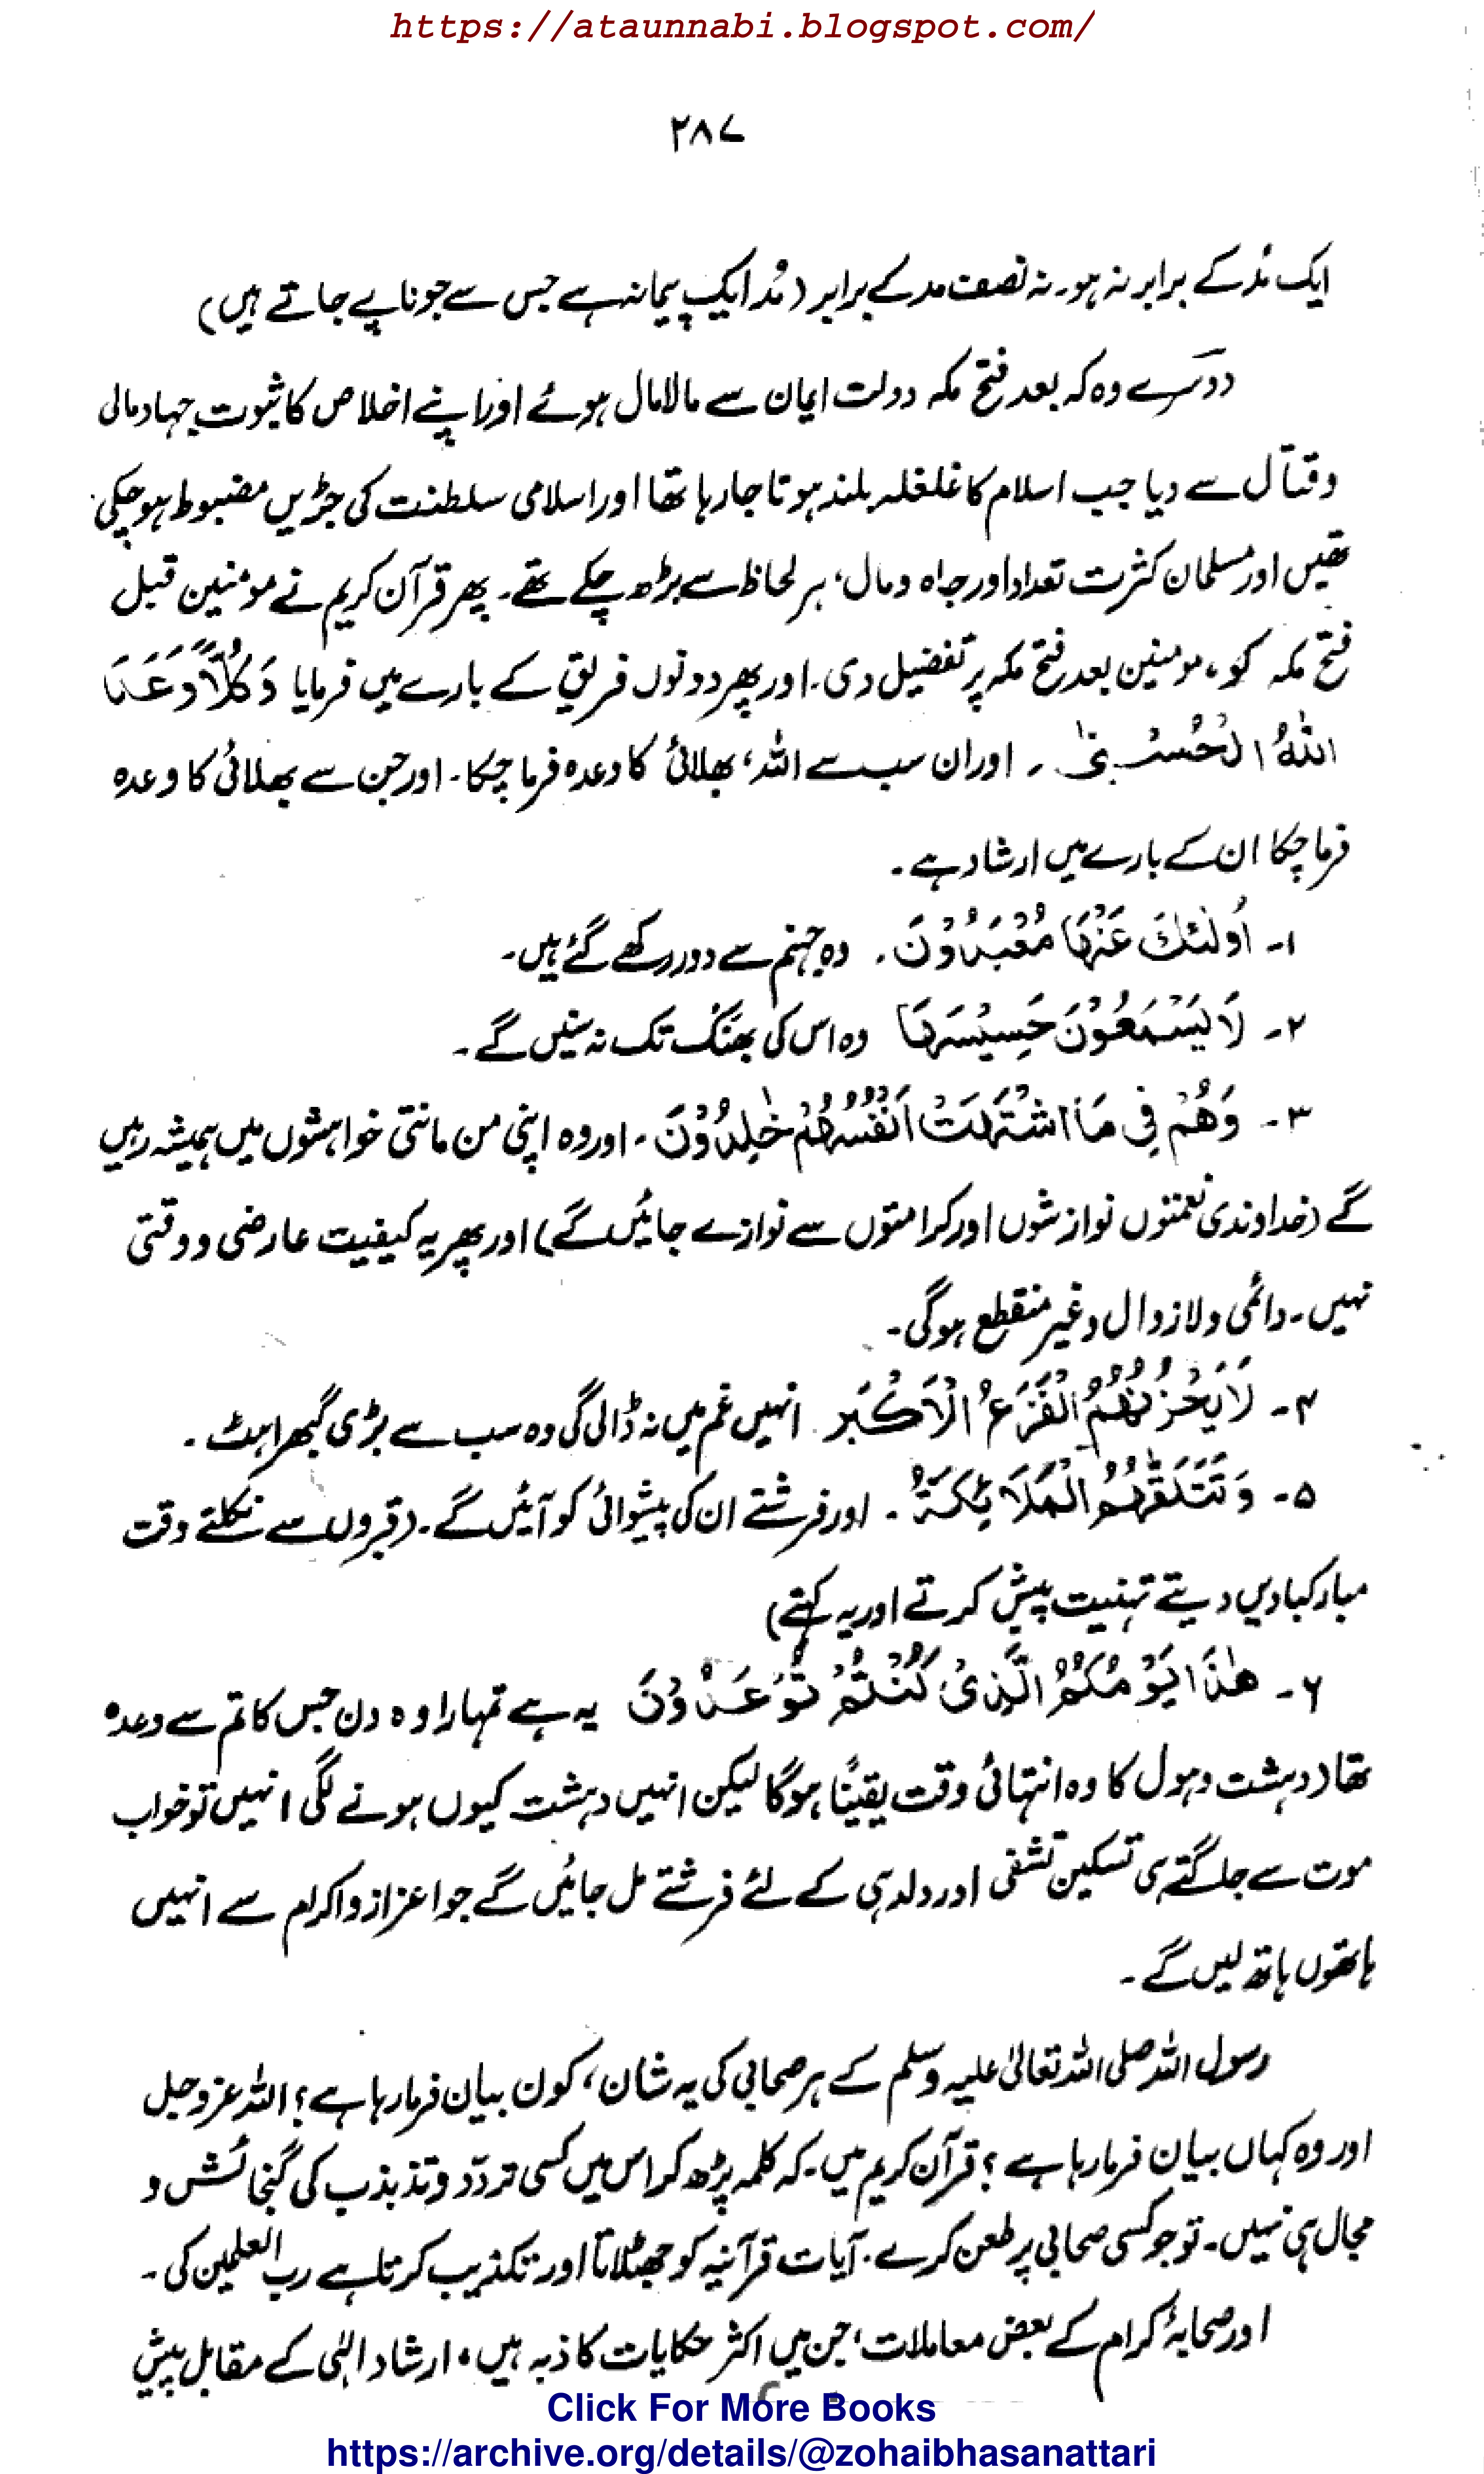 https://ataunnabi.blogspot.com/
۲۸۷
ایک مُد کے برابر نہ ہو۔ نہ نصف مد کے برابر (مُد ایک پیمانہ ہے جس سے جو ناپے جاتے ہیں)
دوسرے وہ کہ بعد فتح مکہ دولت ایمان سے مالامال ہوئے اور اپنے اخلاص کا ثبوت جہاد مالی
و قتال سے دیا جب اسلام کا غلغلہ بلند ہوتا جا رہا تھا اور اسلامی سلطنت کی جڑیں مضبوط ہو چکی
تھیں اور مسلمان کثرت تعداد اور جاہ و مال، ہر لحاظ سے بڑھ چکے تھے۔ پھر قرآن کریم نے مومنین قبل
فتح مکہ کو، مومنین بعد فتح مکہ پر تفضیل دی۔ اور پھر دونوں فریق کے بارے میں فرمایا وَكُلًّا وَّعَدَ
اللّٰهُ الْحُسْنٰی ۔ اور ان سب سے اللہ، بھلائی کا وعدہ فرما چکا۔ اور جن سے بھلائی کا وعدہ
فرما چکا ان کے بارے میں ارشاد ہے۔
۱۔ اُولٰئِكَ عَنْهَا مُبْعَدُوْنَ ۔ وہ جہنم سے دور رکھے گئے ہیں۔
۲۔ لَا یَسْمَعُوْنَ حَسِیْسَهَا وہ اس کی بھنک تک نہ سنیں گے۔
۳۔ وَهُمْ فِی مَا اشْتَهَتْ اَنْفُسُهُمْ خٰلِدُوْنَ ۔ اور وہ اپنی من مانتی خواہشوں میں ہمیشہ رہیں
گے (خداوندی نعمتوں نوازشوں اور کرامتوں سے نوازے جائیں گے) اور پھر یہ کیفیت عارضی و وقتی
نہیں۔ دائمی و لازوال و غیر منقطع ہوگی۔
۴۔ لَا یَحْزُنُهُمُ الْفَزَعُ الْاَكْبَر۔ انہیں غم میں نہ ڈالی گی وہ سب سے بڑی گھبراہٹ۔
۵۔ وَتَتَلَقّٰهُمُ الْمَلَائِكَةُ ۔ اور فرشتے ان کی پیشوائی کو آئیں گے۔ (قبروں سے نکلتے وقت
مبارکبادیں دیتے تہنیت پیش کرتے اور یہ کہتے)
۶۔ هٰذَا یَوْمُكُمُ الَّذِیْ كُنْتُمْ تُوْعَدُوْنَ یہ ہے تمہارا وہ دن جس کا تم سے وعدہ
تھا (دہشت و ہول کا وہ انتہائی وقت یقینًا ہوگا لیکن انہیں دہشت کیوں ہونے لگی انہیں تو خواب
موت سے جاگتے ہی تسکین تشفی اور دلدہی کے لئے فرشتے مل جائیں گے جو اعزاز و اکرام سے انہیں
ہاتھوں ہاتھ لیں گے۔
رسول اللہ صلی اللہ تعالیٰ علیہ وسلم کے ہر صحابی کی یہ شان، کون بیان فرما رہا ہے؟ اللہ عزوجل
اور وہ کہاں بیان فرما رہا ہے؟ قرآن کریم میں۔ کہ کلمہ پڑھ کر اس میں کسی تردّد و تذبذب کی گنجائش و
مجال ہی نہیں۔ تو جو کسی صحابی پر طعن کرے۔ آیات قرآنیہ کو جھٹلاتا اور تکذیب کرتا ہے رب العلمین کی۔
اور صحابۂ کرام کے بعض معاملات، جن میں اکثر حکایات کاذبہ ہیں، ارشاد الٰہی کے مقابل پیش
Click For More Books
https://archive.org/details/@zohaibhasanattari